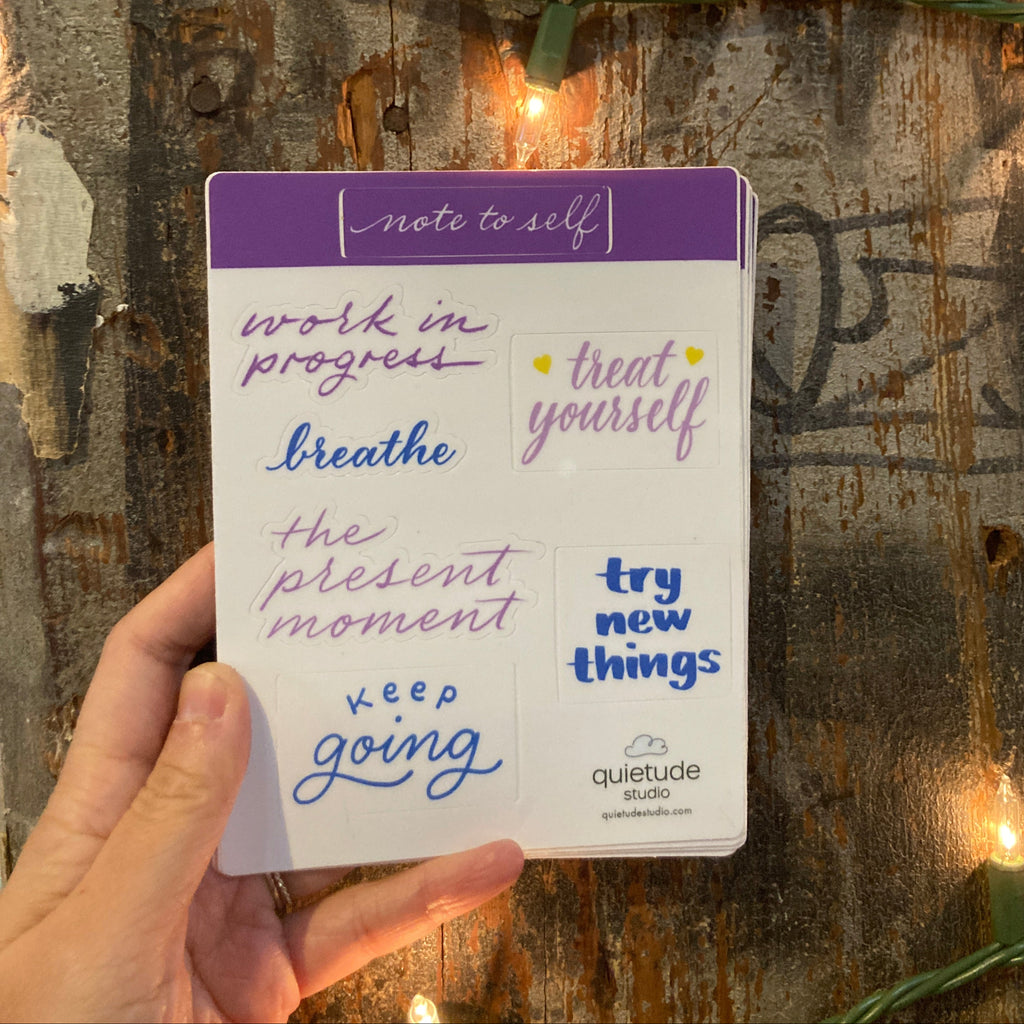 note to self
work in
progress
treat
yourself
breathe
the
present
moment
try
new
things
keep
going
quietude
studio
quietudestudio.com